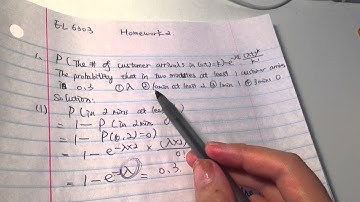 EL 6303 Homework 2
1. P(The # of customer arrivals in (0,t) = k) = e^-λt (λt)^k / k!
The probability that in two minutes at least 1 customer arrives
is 0.3 ① λ ② 4min at least 2 ③ 1min 1 ④ 3min 0
Solution:
(1) P(in 2 mins at least
= 1 - P(in 2 mins 0
= 1 - P(0,2)=0)
= 1 - e^-λx2 × (λx2
= 1 - e = 0.3